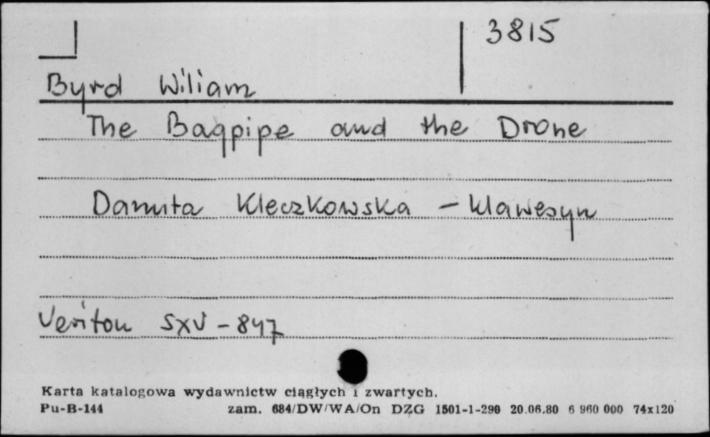 3815
Byrd Wiliam
The Bagpipe and the Drone
Danuta Kleczkowska - klawesyn
Veriton SXV - 847
Karta katalogowa wydawnictw ciągłych i zwartych.
Pu-B-144 zam. 684/DW/WA/On DZG 1501-1-290 20.06.80 6 960 000 74x120